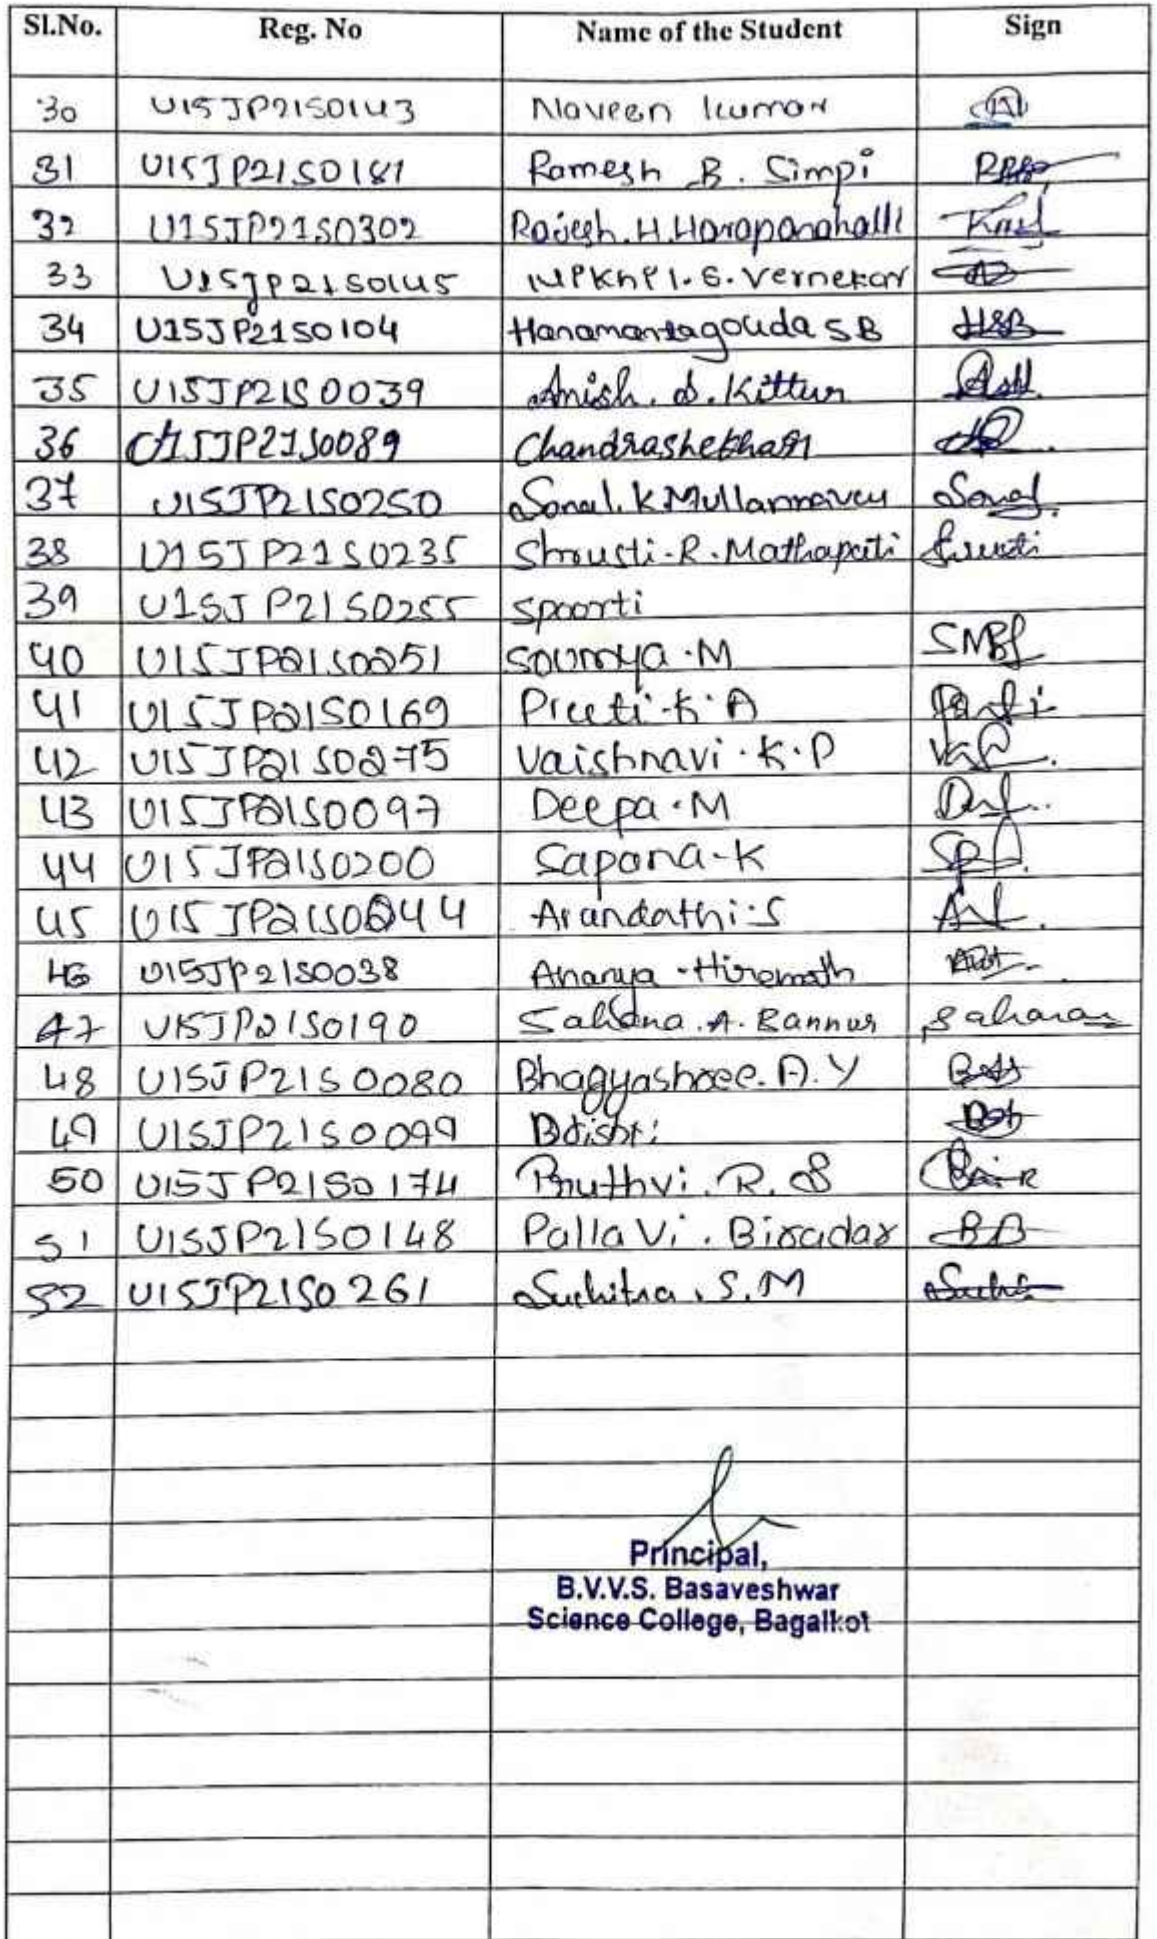 Sl.No. Reg. No Name of the Student Sign
30 U15JP21S0143 Naveen kumar
31 U15JP21S0181 Ramesh B. Simpi
32 U15JP21S0302 Rajesh.H.Harapanahalli
33 U15JP21S0145 Vernekar
34 U15JP21S0104 Hanamantagouda SB HSB
35 U15JP21S0039 Anish. S. Kittur
36 U15JP21S0089 Chandrashekhar
37 U15JP21S0250 Sonal. K Mullannavar Sonal
38 U15JP21S0235 Shrusti.R.Mathapati
39 U15JP21S0255 spoorti
40 U15JP21S0251 soumya.M
41 U15JP21S0169 Preeti.K.A
42 U15JP21S0275 Vaishnavi.K.P
43 U15JP21S0097 Deepa.M
44 U15JP21S0200 Sapana-K
45 U15JP21S0244 Arundathi.S
46 U15JP21S0038 Ananya Hiremath
47 U15JP21S0190 Sahana.A.Bannur Sahana
48 U15JP21S0080 Bhagyashree.A.Y
49 U15JP21S0099
50 U15JP21S0174 Pruthvi.R.S
51 U15JP21S0148 Pallavi. Biradar BB
52 U15JP21S0261 Suchitra.S.M
Principal,
B.V.V.S. Basaveshwar
Science College, Bagalkot